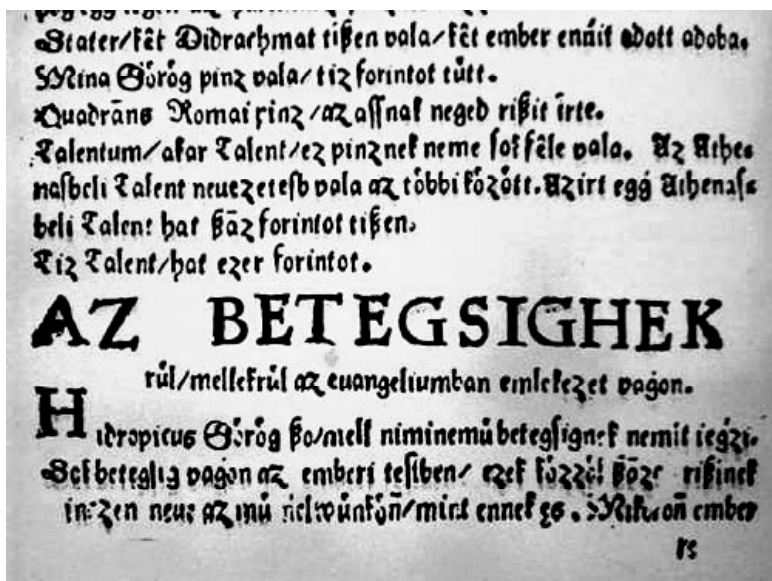 Stater/két Didrachmat tißen vala/két ember enáit adott adoba.
Mina Görög pinz vala/tiz forintot tútt.
Quadrãns Romai pinz/az assnak neged rißit irte.
Talentum/akar Talent/ez pinznek neme sok féle vala. Az Athe⸗
nasbeli Talent neuezetesb vala az többi között. Azirt egǵ Athenas⸗
beli Talent hat ßãz forintot tißen.
Tiz Talent/hat ezer forintot.
AZ BETEGSIGHEK
rúl/mellekrúl az euangeliumban emlekezet vaǵon.
Hidropicus Görög ßo/mell niminemú betegsignek nemit ieǵzi.
Sok betegsig vaǵon az emberi testben/ ezek közzól rißinek
neue az mú /mint ennek es. ember